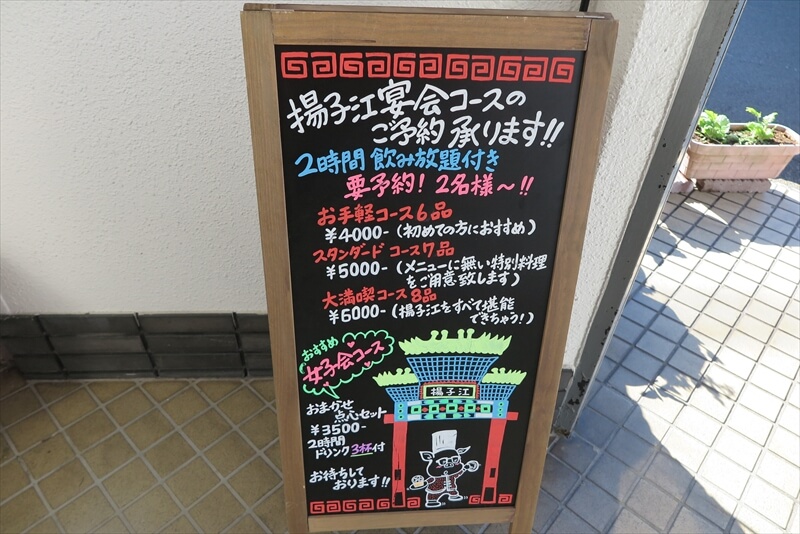 揚子江宴会コースの
ご予約承ります!!
2時間飲み放題付き
要予約! 2名様〜!!
お手軽コース6品
¥4000-(初めての方におすすめ)
スタンダードコース7品
¥5000-(メニューに無い特別料理
をご用意致します)
大満喫コース8品
¥6000-(揚子江をすべて堪能
できちゃう!)
おすすめ
女子会コース
おまかせ
点心セット
¥3500-
2時間
ドリンク3杯付
お待ちして
おります!!
揚子江